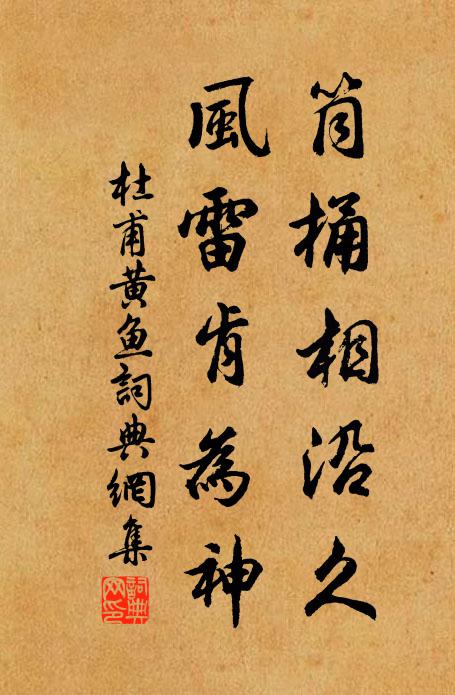 筒桶相沿久
風雷肯為神
杜甫黄魚詞典網集
詞典
网印